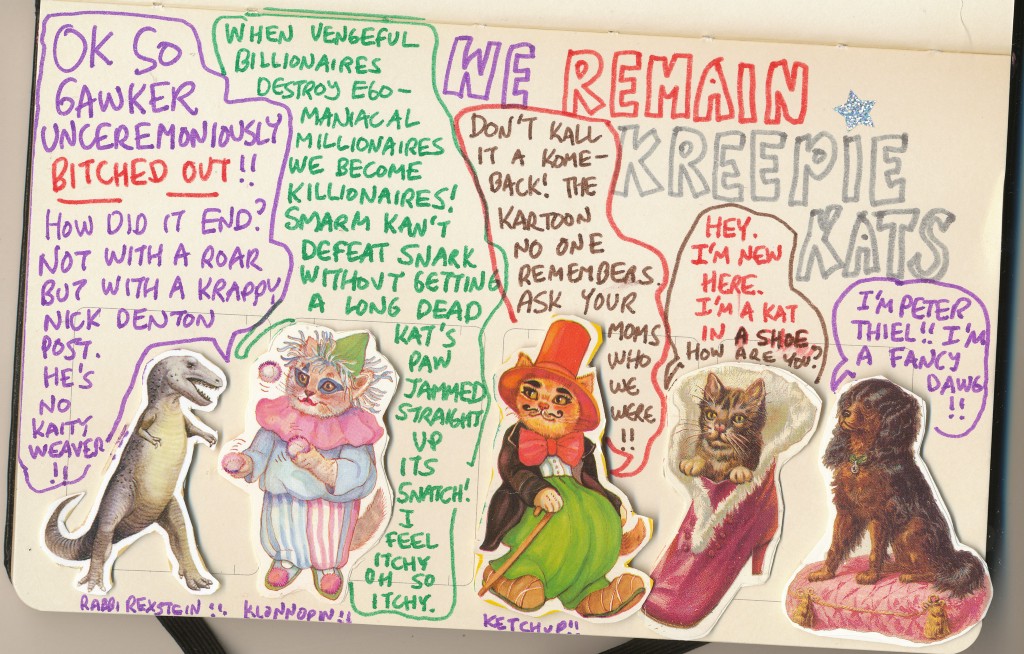 WE REMAIN
KREEPIE
KATS
OK SO
GAWKER
UNCEREMONIOUSLY
BITCHED OUT!!
HOW DID IT END?
NOT WITH A ROAR
BUT WITH A KRAPPY
NICK DENTON
POST.
HE'S
NO
KAITY
WEAVER!
!!
WHEN VENGEFUL
BILLIONAIRES
DESTROY EGO-
MANIACAL
MILLIONAIRES
WE BECOME
KILLIONAIRES!
SMARM KAN'T
DEFEAT SNARK
WITHOUT GETTING
A LONG DEAD
KAT'S
PAW
JAMMED
STRAIGHT
UP
ITS
SNATCH!
I
FEEL
ITCHY
OH SO
ITCHY.
DON'T KALL
IT A KOME-
BACK! THE
KARTOON
NO ONE
REMEMBERS.
ASK YOUR
MOMS
WHO
WE
WERE
!!
HEY.
I'M NEW
HERE.
I'M A KAT
IN A SHOE.
HOW ARE YOU?
I'M PETER
THIEL!! I'M
A FANCY
DAWG
!!
RABBI REXSTEIN!!
KLONNOPIN!!
KETCHUP!!